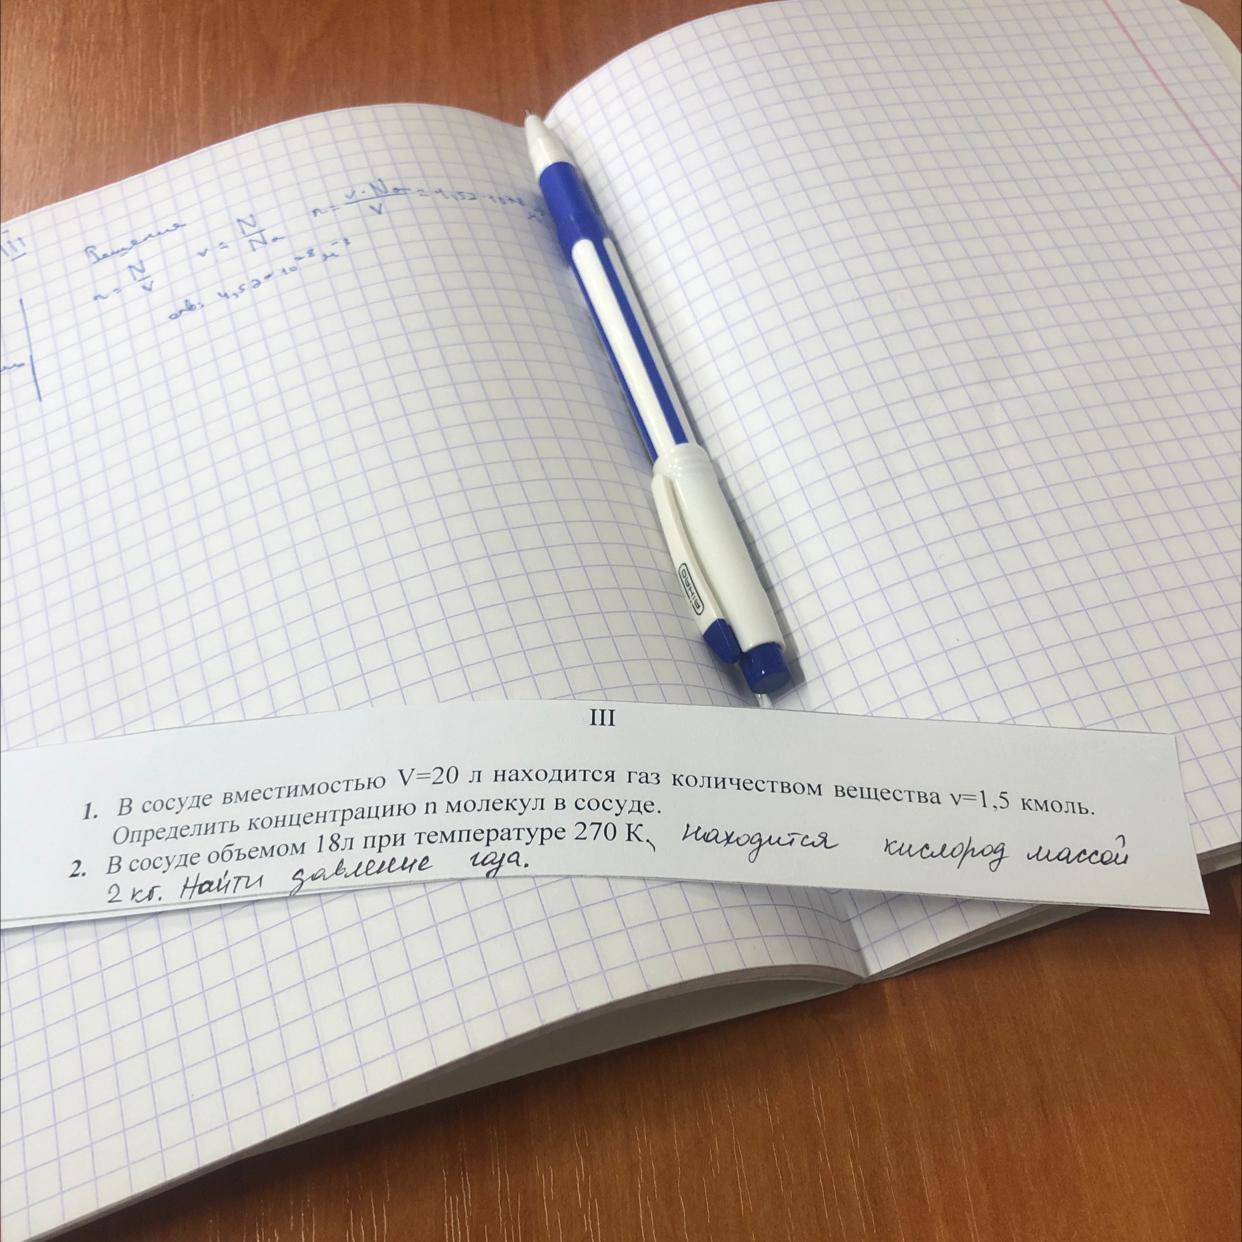 III
Решение
n = N/V ν = N/Nа n = ν·Nа/V
III
1. В сосуде вместимостью V=20 л находится газ количеством вещества ν=1,5 кмоль.
Определить концентрацию n молекул в сосуде.
2. В сосуде объемом 18л при температуре 270 К, находится кислород массой
2 кг. Найти давление газа.